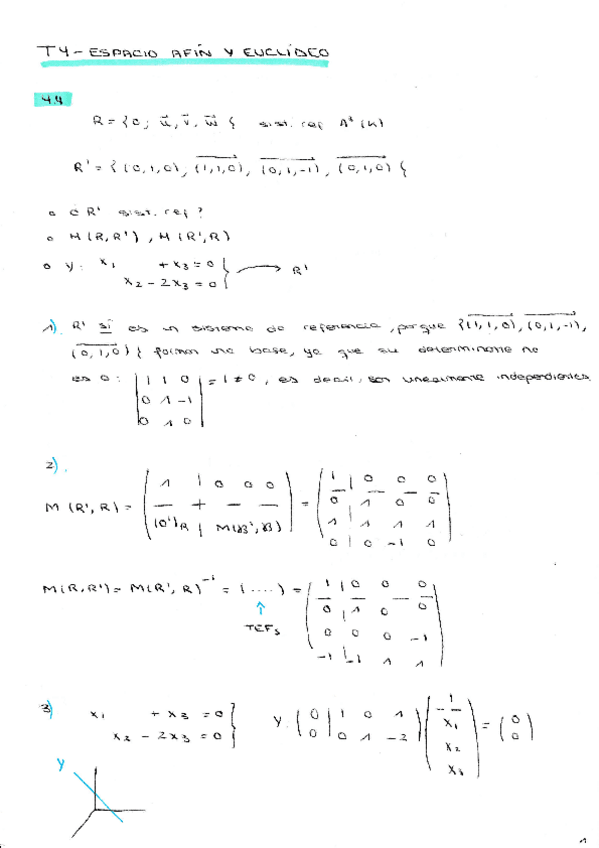 T4 - ESPACIO AFÍN Y EUCLÍDEO
4.4
R = {O; u⃗, v⃗, w⃗} sist. ref A³(K)
R' = {(0,1,0), (1,1,0), (0,1,-1), (0,1,0)}
¿R' sist. ref?
M(R,R'), M(R',R)
Y: x₁ + x₃ = 0
x₂ - 2x₃ = 0 } → R'
1) R' sí es un sistema de referencia, porque {(1,1,0), (0,1,-1),
(0,1,0)} forman una base, ya que su determinante no
es 0: | 1 1 0 | = 1 ≠ 0, es decir, son linealmente independientes.
0 1 -1
0 1 0
2).
M(R',R) = ( 1 | 0 0 0 ) = ( 1 | 0 0 0 )
(O')R | M(B',B) 0 | 1 0 0
1 | 1 1 1
0 | 0 -1 0
M(R,R') = M(R',R)⁻¹ = (....) = ( 1 | 0 0 0 )
0 | 1 0 0
TEFs 0 0 0 -1
-1 | -1 1 1
3) x₁ + x₃ = 0 Y: ( 0 | 1 0 1 ) ( 1 ) = ( 0 )
x₂ - 2x₃ = 0 0 | 0 1 -2 x₁ 0
x₂
x₃
Y
1